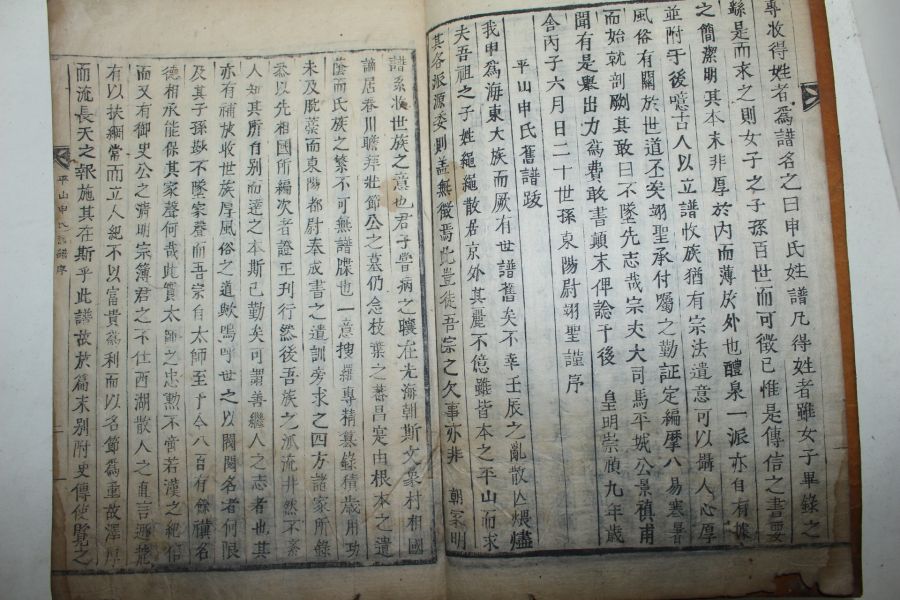 專收得姓者爲譜名之曰申氏姓譜凡得姓者雖女子畢錄之
繇是而求之則女子之子孫百世而可徵已惟是傳信之書要
之簡潔明其本末非厚於內而薄於外也醴泉一派亦自有據
並附于後噫古人以立譜收族猶有宗法遺意可以攝人心厚
風俗有關於世道丕矣翊聖承付囑之勤証定編摩八易寒暑
而始就剞劂其敢曰不墜先志哉宗夫大司馬平城公景禛甫
聞有是擧出力爲費敢書顚末俾諗于後 皇明崇禎九年歲
舍丙子六月日二十世孫東陽尉翊聖謹序
平山申氏舊譜跋
我申爲海東大族而厥有世譜舊矣不幸壬辰之亂散亾煨燼
夫吾祖之子姓繩繩散居京外其麗不億雖皆本之平山而求
其各派源委則盖無徵焉此豈徒吾宗之欠事亦非 朝家明
譜系收世族之意也君子嘗病之曩在光海朝斯文象村相國
謫居春川瞻拜壯節公之墓仍念枝葉之蕃昌寔由根本之遺
蔭而氏族之繁不可無譜牒也一意搜羅專精纂錄積歲用功
未及脫藁而東陽都尉奉成書之遺訓旁求之四方諸家所錄
悉以先相國所編次者證正刊行然後吾族之派流井然不紊
人知其所自別而達之本斯已勤矣可謂善繼人之志者也其
亦有補於收世族厚風俗之道歟嗚呼世之以閥閱名者何限
及其子孫尟不墜家聲而吾宗自太師至于今八百有餘禩名
德相承能保其家聲何哉此實太師之忠勲不啻若漢之紀信
而又有御史公之淸明宗簿君之不仕西湖散人之直言遜荒
有以扶綱常而立人紀不以富貴爲利而以名節爲重故澤厚
而流長天之報施其在斯乎此譜故於篇末別附史傳使覽之
平山申氏 譜序